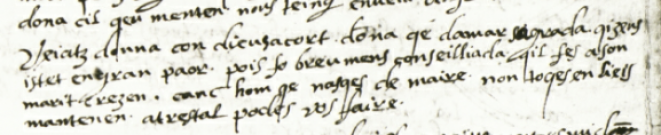 dona cil qeu menten nous teing
Veiatz donna con dieus acort. dona qe damar sagrada. qizens
istet en gran paor. pois fo breumens conseilliada. qil fes a son
marit crezen. canc hom qe nasqes de maire. non toqes en liess
mantenen. atrestal podes vos faire.